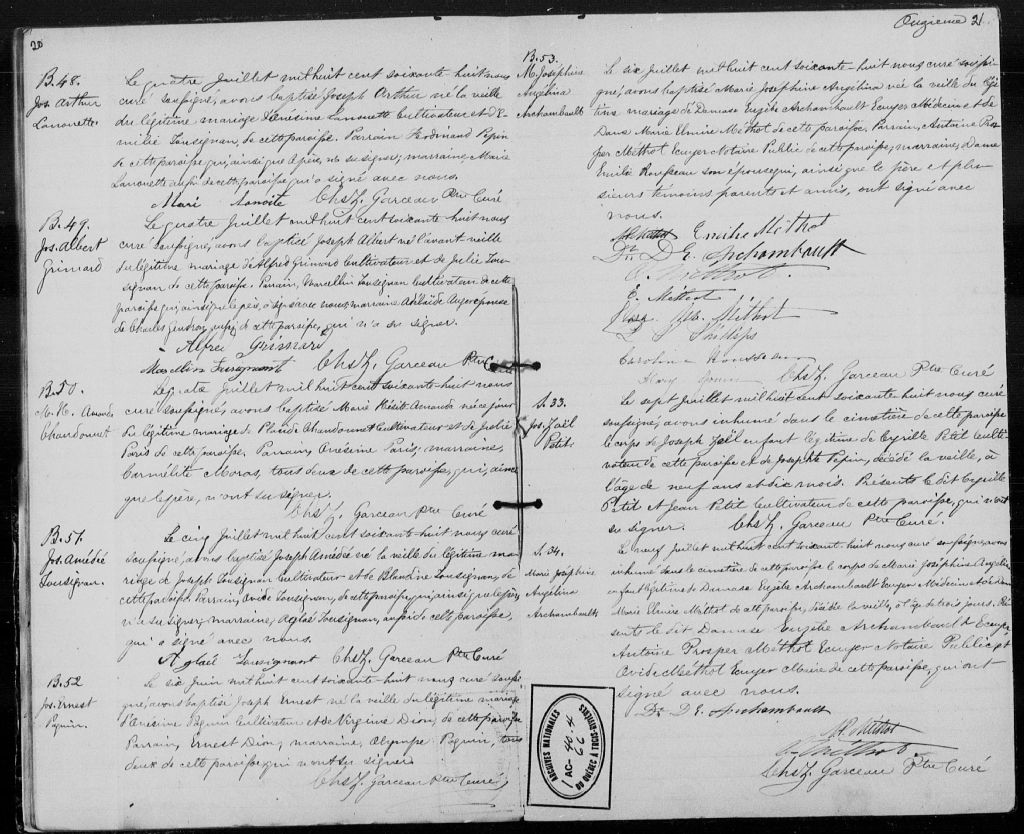 20
B.48.
Jos. Arthur
Lanouette.
Le quatre Juillet mil huit cent soixante-huit nous
curé soussigné, avons baptisé Joseph Arthur né la veille
du légitime mariage d'Onésime Lanouette Cultivateur et d'E-
milie Lousignan, de cette paroisse. Parrain Ferdinand Pepin
de cette paroisse qui, ainsi que le père, n'a su signer; marraine Marie
Lanouette aussi de cette paroisse qui a signé avec nous.
Mari Lanoite Chs Z. Garceau Ptre Curé
B.49.
Jos. Albert
Grimard
Le quatre Juillet mil huit cent soixante-huit nous
curé soussigné, avons baptisé Joseph Albert né l'avant veille
du légitime mariage d'Alfred Grimard Cultivateur et de Julie Lou-
signan de cette paroisse. Parrain, Marcellin Lousignan Cultivateur de cette
paroisse qui, ainsi que le père, a signé avec nous; marraine Adélaïde Auger épouse
de Charles Gendron, aussi de cette paroisse, qui n'a su signer.
Alfred Grimard
Marcellin Lusignant Chs Z. Garceau Ptre Curé
B.50.
M. H. Amanda
Chandonnet
Le quatre Juillet mil huit cent soixante-huit nous
curé soussigné, avons baptisé Marie Amanda née ce jour
du légitime mariage de Placide Chandonnet Cultivateur et de Julie
Paris de cette paroisse. Parrain, Onesime Paris; marraine,
Carmélite Moras, tous deux de cette paroisse, qui, ainsi
que le père, n'ont su signer.
Chs Z. Garceau Ptre Curé
B.51.
Jos. Amédée
Lousignan.
Le cinq Juillet mil huit cent soixante-huit nous curé
soussigné, avons baptisé Joseph Amédé né la veille du légitime ma-
riage de Joseph Lousignan Cultivateur et de Blandine Lousignan, de
cette paroisse. Parrain, Ovide Lousignan, de cette paroisse, qui, ainsi que le père,
n'a su signer; marraine, Aglaé Lousignan, aussi de cette paroisse,
qui a signé avec nous.
Aglaé Lousignant Chs Z. Garceau Ptre Curé
B.52
Jos. Ernest
Paquin.
Le six Juin mil huit cent soixante-huit nous curé soussi-
gné, avons baptisé Joseph Ernest né la veille du légitime mariage
d'Onésime Paquin Cultivateur et de Virginie Dion, de cette paroisse
Parrain, Ernest Dion; marraine, Olympe Paquin, tous
deux de cette paroisse qui n'ont su signer.
Chs Z. Garceau Ptre Curé
Onzième 21.
B.53.
M. Josephine
Angélina
Archambault
Le six Juillet mil huit cent soixante-huit nous curé soussi-
gné, avons baptisé Marie Josephine Angélina née la veille du légi-
time mariage de Damase Eugète Archambault Ecuyer Médecin et de
Dame Marie Elmire Méthot de cette paroisse. Parrain, Antoine Pros-
per Méthot Ecuyer Notaire Public de cette paroisse; marraine, Dame
Emilie Rousseau son épouse qui, ainsi que le père et plu-
sieurs témoins parents et amis, ont signé avec
nous.
A P Méthot Emilie Méthot
Dr. D E. Archambault
O. Méthot
E. Méthot
Méthot
Philipps
Caroline Rousseau
Chs Z. Garceau Ptre Curé
S. 33.
Jos. Zoël
Petit.
Le sept Juillet mil huit cent soixante-huit nous curé
soussigné, avons inhumé dans le cimetière de cette paroisse
le corps de Joseph Zoël enfant légitime de Cyrille Petit Culti-
vateur de cette paroisse et de Josephte Pepin, décédé la veille, à
l'âge de neuf ans et dix mois. Présents le dit Cyrille
Petit et Jean Petit Cultivateur de cette paroisse, qui n'ont
su signer. Chs Z. Garceau Ptre Curé.
S. 34.
Marie Josephine
Angélina
Archambault
Le neuf Juillet mil huit cent soixante-huit nous curé soussigné, avons
inhumé dans le cimetière de cette paroisse le corps de Marie Josephine Angélina
enfant légitime de Damase Eugète Archambault Ecuyer Médecin et de Dame
Marie Elmire Méthot de cette paroisse, décédée la veille, à l'âge de trois jours. Pré-
sents le dit Damase Eugète Archambault Ecuyer
Antoine Prosper Méthot Ecuyer Notaire Public, et
Ovide Méthot Ecuyer Maire de cette paroisse, qui ont
signé avec nous.
Dr D E. Archambault
A P. Méthot
O. Méthot
Chs Z. Garceau Ptre Curé
ARCHIVES NATIONALES
1 AC- 40.4
66
DU QUÉBEC À TROIS-RIVIÈRES